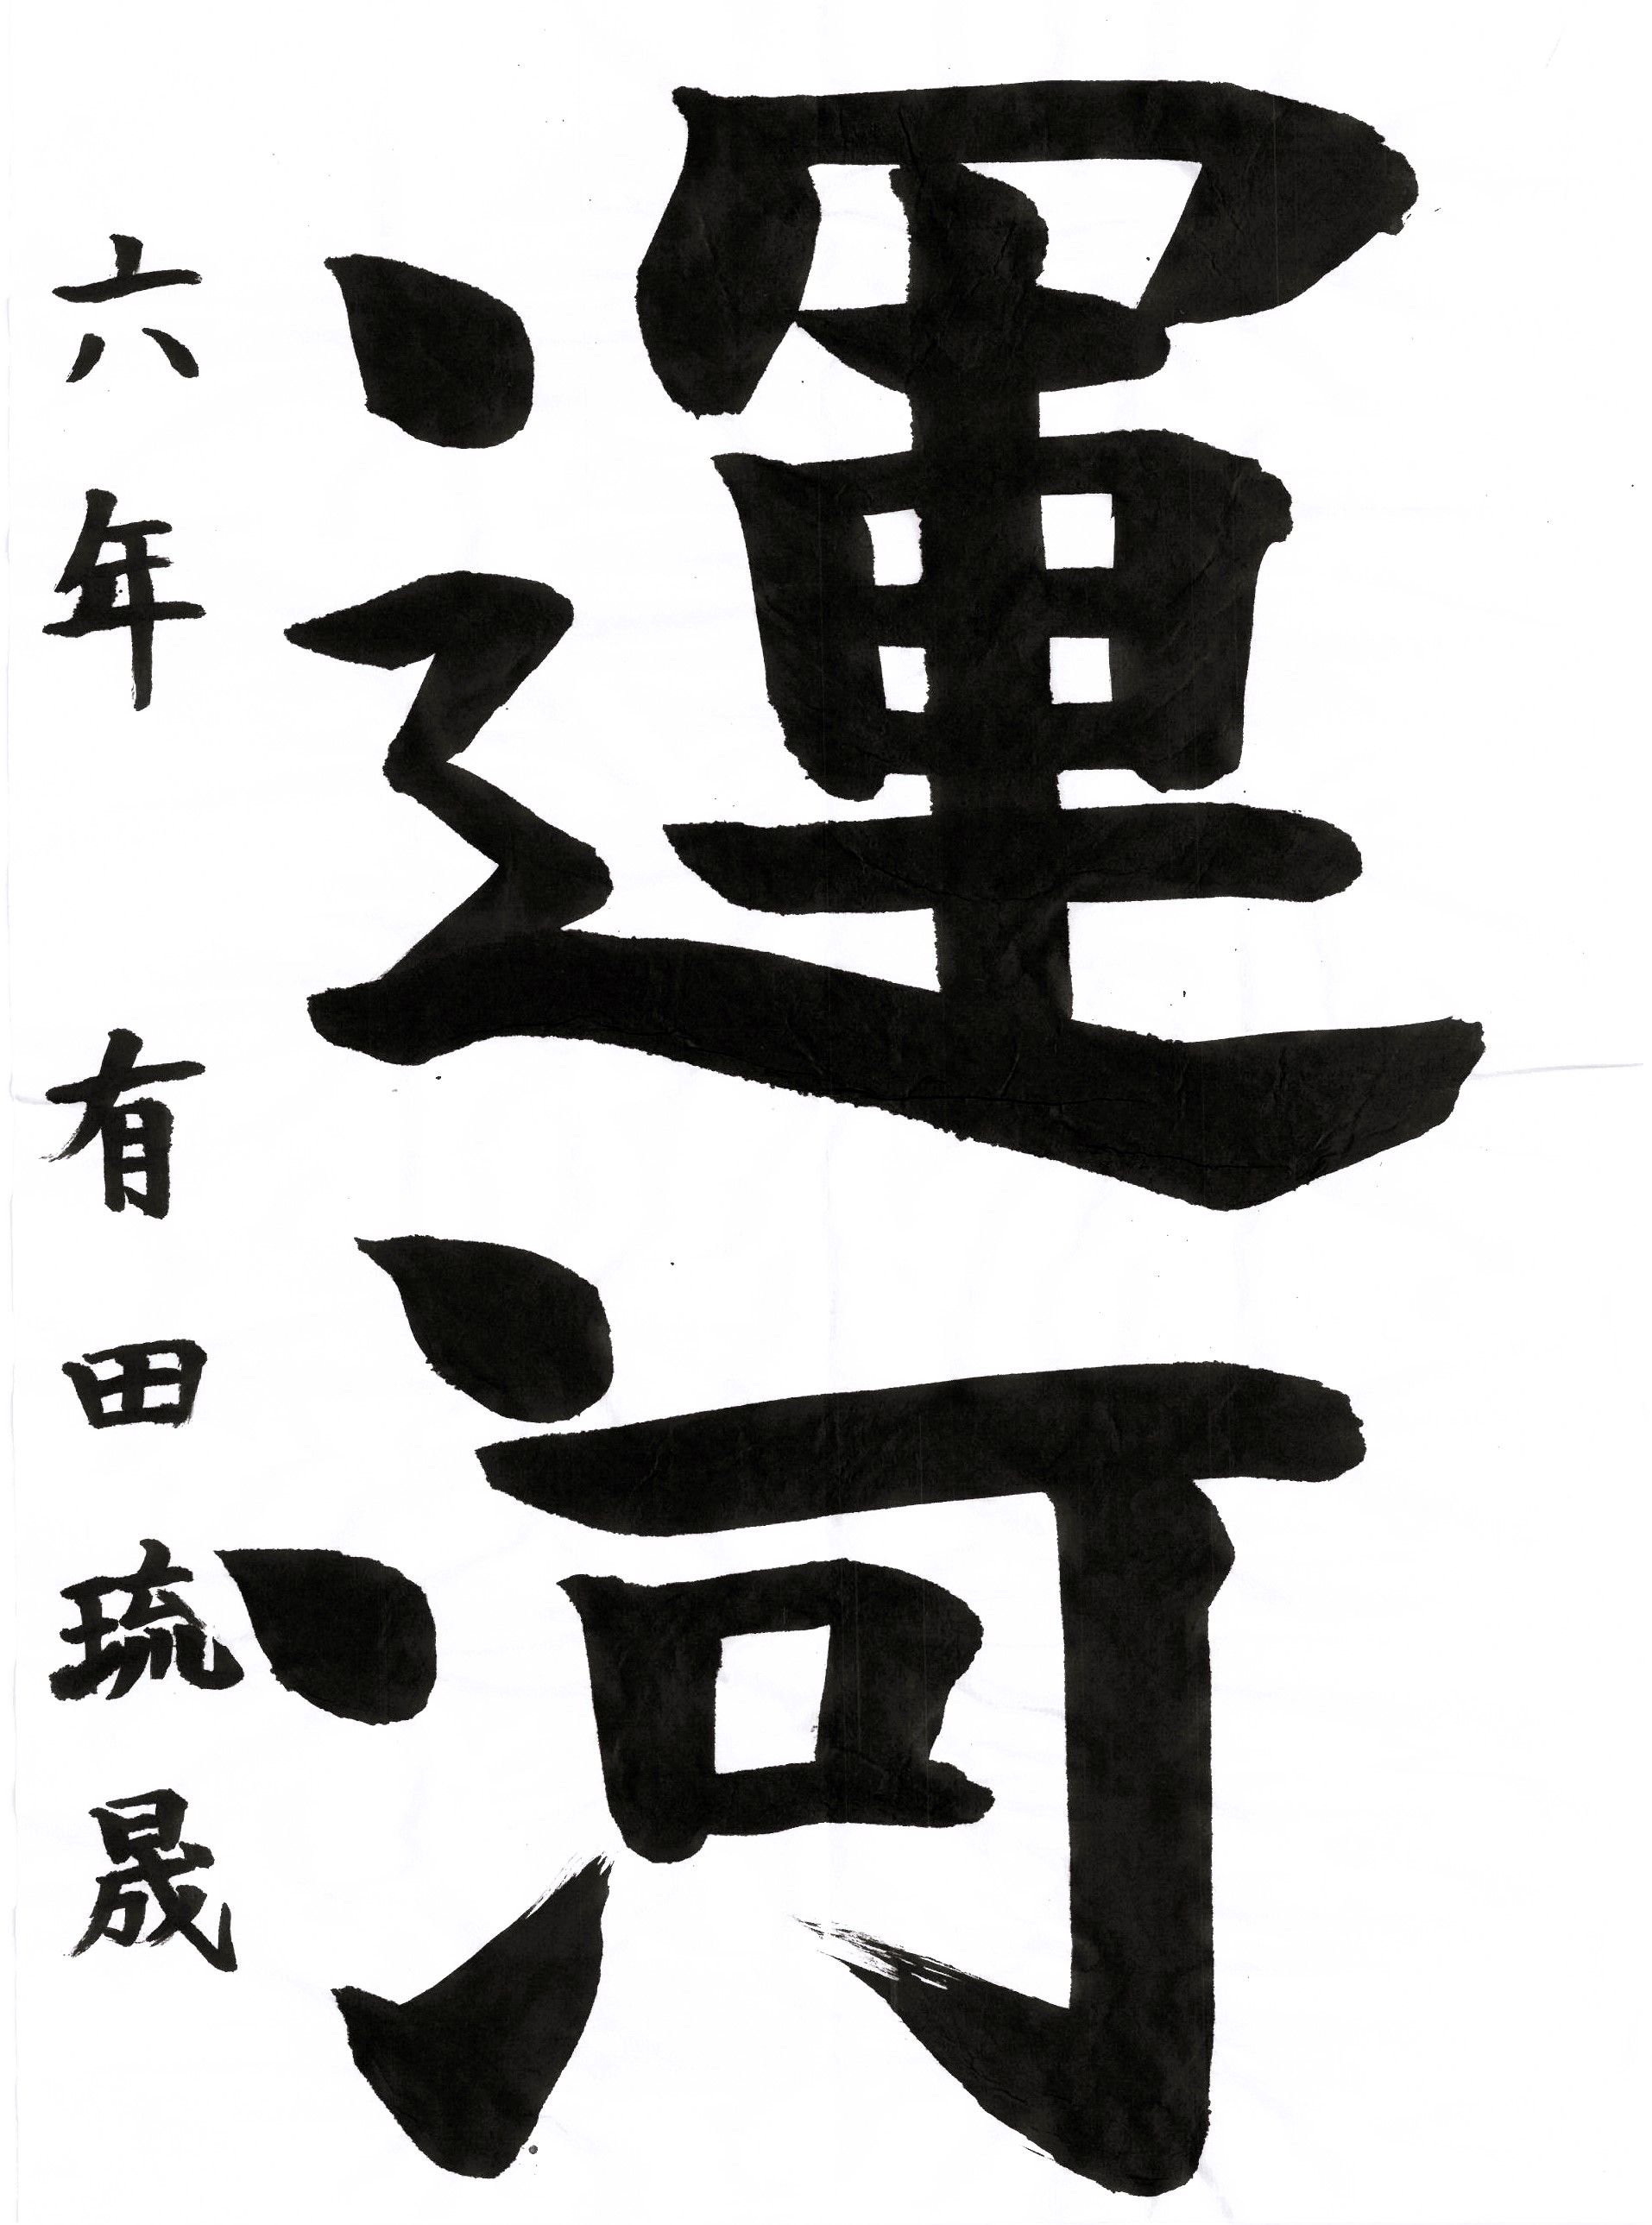 運河
六年 有田琉晟